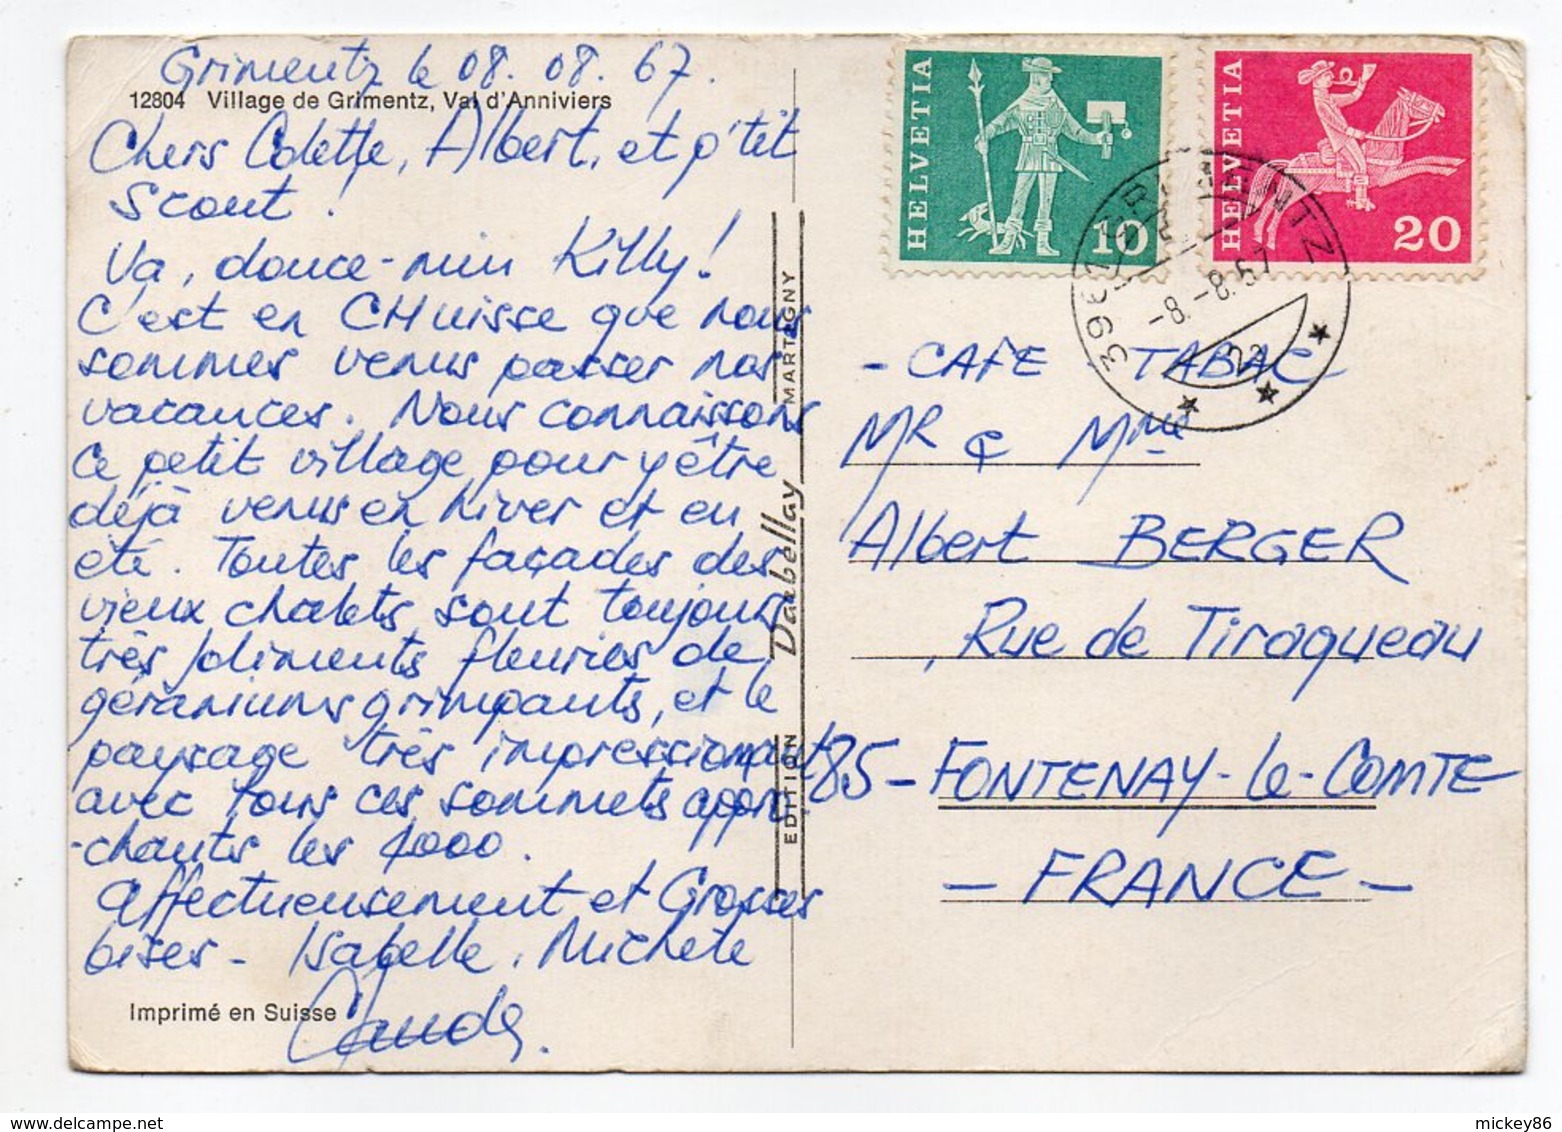 Grimentz le 08. 08. 67.
12804 Village de Grimentz, Val d'Anniviers
Chers Colette, Albert, et p'tit
Scout!
Va, douce-min Killy!
C'est en CHuisse que nous
sommes venus passer nos
vacances. Nous connaissons
ce petit village pour y être
déjà venus en hiver et en
été. Toutes les façades des
vieux chalets sont toujours
très joliments fleuries de
géraniums grimpants, et le
paysage très impressionnant
avec tous ces sommets appro
-chants les 4000.
Affectueusement et Grosses
bises - Isabelle, Michèle
Claude.
Imprimé en Suisse
EDITION Darbellay MARTIGNY
HELVETIA 10
HELVETIA 20
3961 GRIMENTZ
-8.-8.67
- CAFE - TABAC -
MR & Mme
Albert BERGER
, Rue de Tiraqueau
85 - FONTENAY-le-COMTE
- FRANCE -
delcampe.net
mickey86